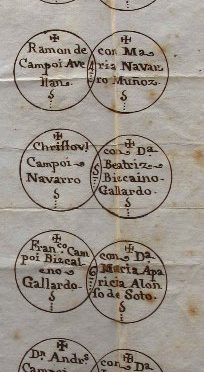 Ramon de
Campoi Ave
llan.
con Ma
ria Navar
ro Muñoz.
Christovl
Campoi
Navarro
con Da
Beatriz
Bizcaino
Gallardo.
Franco Cam
poi Bizcai
eno
Gallardo.
con Da
Maria Apa
ricia Alon
so de Soto.
Dn Andrs
Campoi
con Da